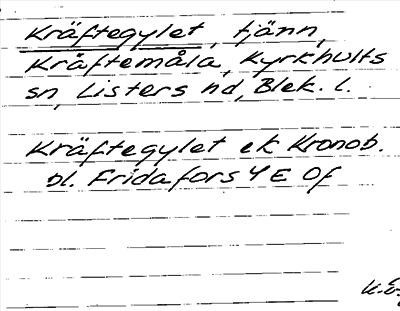 Kräftegylet, tjänn,
Kräftemåla, Kyrkhults
sn, Listers hd, Blek. l.
Kräftegylet ek Kronob.
bl. Fridafors 4 E Of